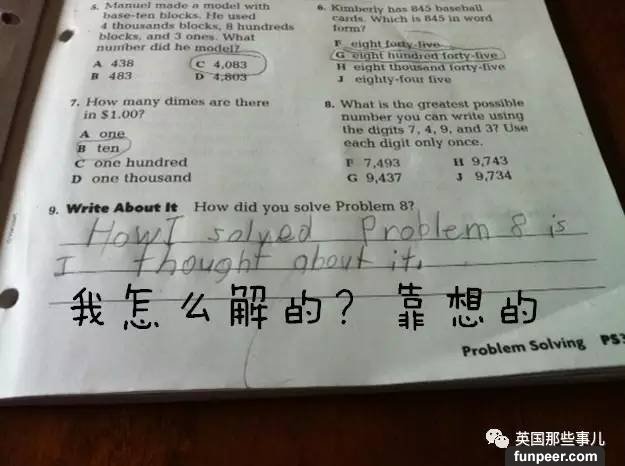 5. Manuel made a model with
base-ten blocks. He used
4 thousands blocks, 8 hundreds
blocks, and 3 ones. What
number did he model?
A 438
C 4,083
B 483
D 4,803
6. Kimberly has 845 baseball
cards. Which is 845 in word
form?
F eight forty-five
G eight hundred forty-five
H eight thousand forty-five
J eighty-four five
7. How many dimes are there
in $1.00?
A one
B ten
C one hundred
D one thousand
8. What is the greatest possible
number you can write using
the digits 7, 4, 9, and 3? Use
each digit only once.
F 7,493
H 9,743
G 9,437
J 9,734
9. Write About It How did you solve Problem 8?
How I solved Problem 8 is
I thought about it.
我怎么解的? 靠想的
Problem Solving PS3
英国那些事儿
funpeer.com